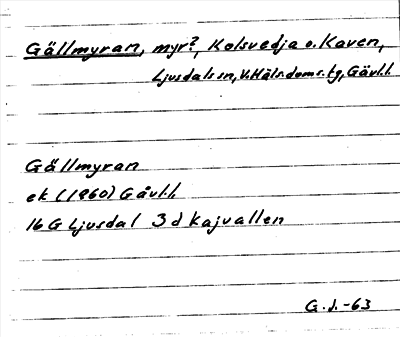 Gällmyran, myr?, Kolsvedja o. Kaven,
Ljusdals sn, V. Häls. doms. tg, Gävl.l.
Gällmyran
ek (1960) Gävl.l.
16 G Ljusdal 3 d Kajvallen
G. J. -63